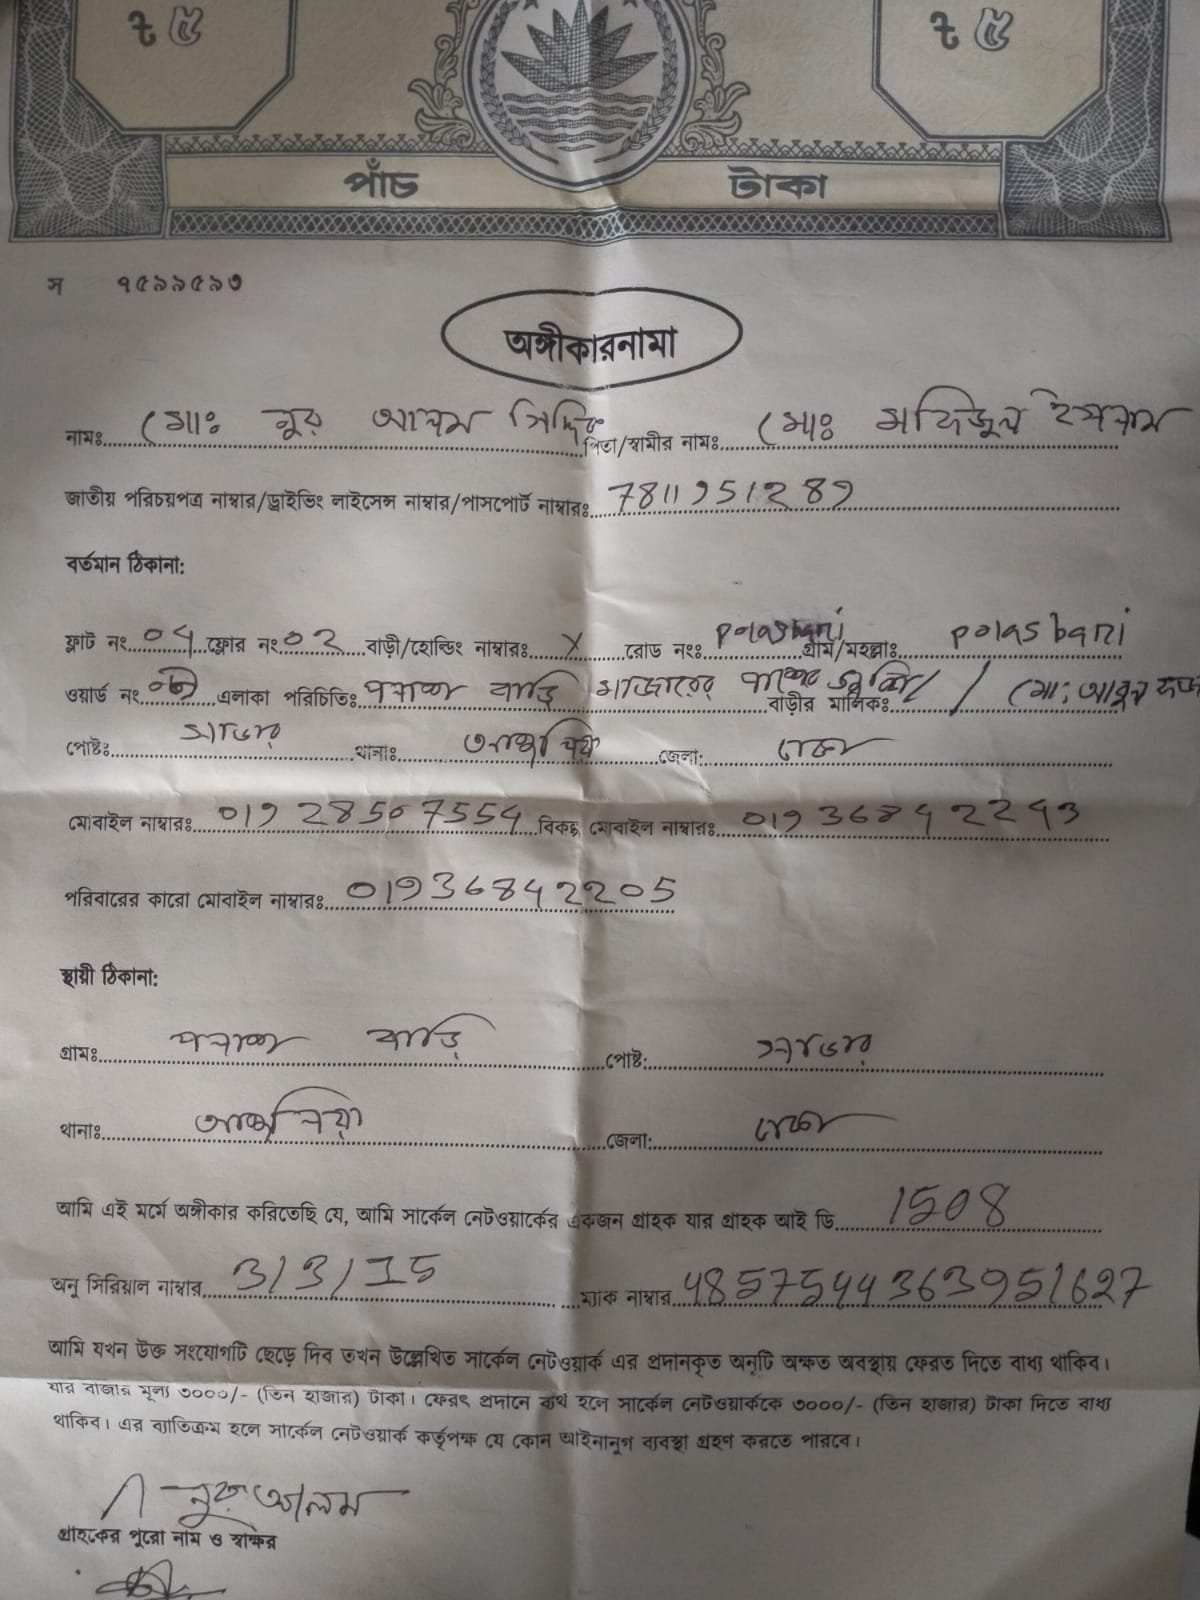 ৳ ৫ ৳ ৫
পাঁচ টাকা
স ৭৫৯৯৫৯৩
অঙ্গীকারনামা
নামঃ মোঃ নুর আলম সিদ্দিক পিতা/স্বামীর নামঃ মোঃ মফিজুল ইসলাম
জাতীয় পরিচয়পত্র নাম্বার/ড্রাইভিং লাইসেন্স নাম্বার/পাসপোর্ট নাম্বারঃ 7811951289
বর্তমান ঠিকানা:
ফ্লাট নং 04 ফ্লোর নং 02 বাড়ী/হোল্ডিং নাম্বারঃ X রোড নংঃ polasbari গ্রাম/মহল্লাঃ polasbari
ওয়ার্ড নং এলাকা পরিচিতিঃ পলাশ বাড়ি মাজারের পাশের বাড়ীর মালিকঃ / মোঃ আবুল
পোষ্টঃ সাভার থানাঃ আশুলিয়া জেলা: ঢাকা
মোবাইল নাম্বারঃ 01928567554 বিকল্প মোবাইল নাম্বারঃ 01936842243
পরিবারের কারো মোবাইল নাম্বারঃ 01936842205
স্থায়ী ঠিকানা:
গ্রামঃ পলাশ বাড়ি পোষ্ট: সাভার
থানাঃ আশুলিয়া জেলা: ঢাকা
আমি এই মর্মে অঙ্গীকার করিতেছি যে, আমি সার্কেল নেটওয়ার্কের একজন গ্রাহক যার গ্রাহক আই ডি 1508
অনু সিরিয়াল নাম্বার 3/3/15 ম্যাক নাম্বার 4857544363951627
আমি যখন উক্ত সংযোগটি ছেড়ে দিব তখন উল্লেখিত সার্কেল নেটওয়ার্ক এর প্রদানকৃত অনুটি অক্ষত অবস্থায় ফেরত দিতে বাধ্য থাকিব।
যার বাজার মূল্য ৩০০০/- (তিন হাজার) টাকা। ফেরৎ প্রদানে ব্যর্থ হলে সার্কেল নেটওয়ার্ককে ৩০০০/- (তিন হাজার) টাকা দিতে বাধ্য
থাকিব। এর ব্যাতিক্রম হলে সার্কেল নেটওয়ার্ক কর্তৃপক্ষ যে কোন আইনানুগ ব্যবস্থা গ্রহণ করতে পারবে।
নুর আলম
গ্রাহকের পুরো নাম ও স্বাক্ষর